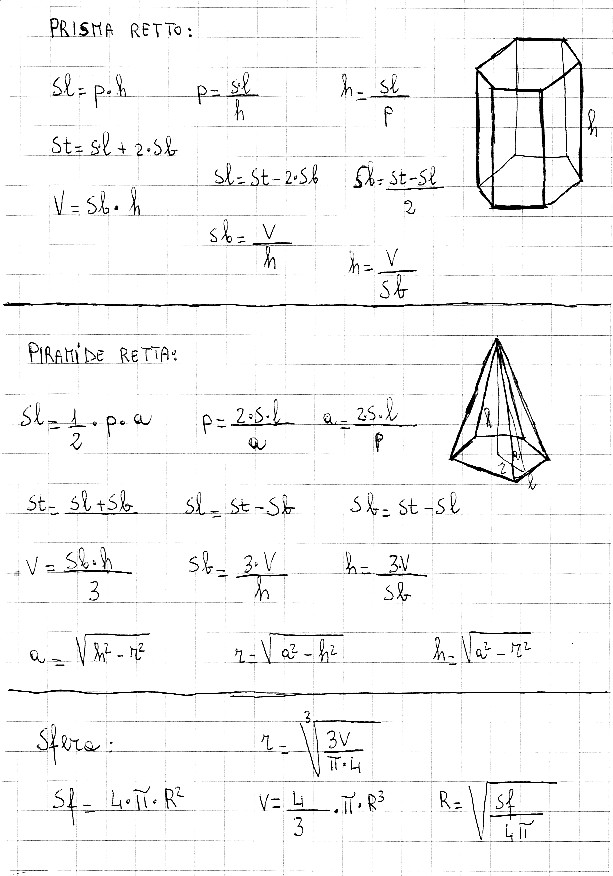 PRISMA RETTO:
Sl = p · h    p = sl/h    h = sl/p
St = sl + 2·Sb
sl = St - 2·Sb    Sb = St - Sl/2
V = Sb · h
sb = V/h    h = V/Sb
h
PIRAMIDE RETTA:
Sl = 1/2 · p · a    p = 2·S·l/a    a = 2S·l/p
St = Sl + Sb    Sl = St - Sb    Sb = St - Sl
V = Sb·h/3    Sb = 3·V/h    h = 3·V/Sb
a = √h² - r²    r = √a² - h²    h = √a² - r²
h a r l
Sfera:    r = ³√3V/π·4
Sf = 4·π·R²    V = 4/3·π·R³    R = √Sf/4π